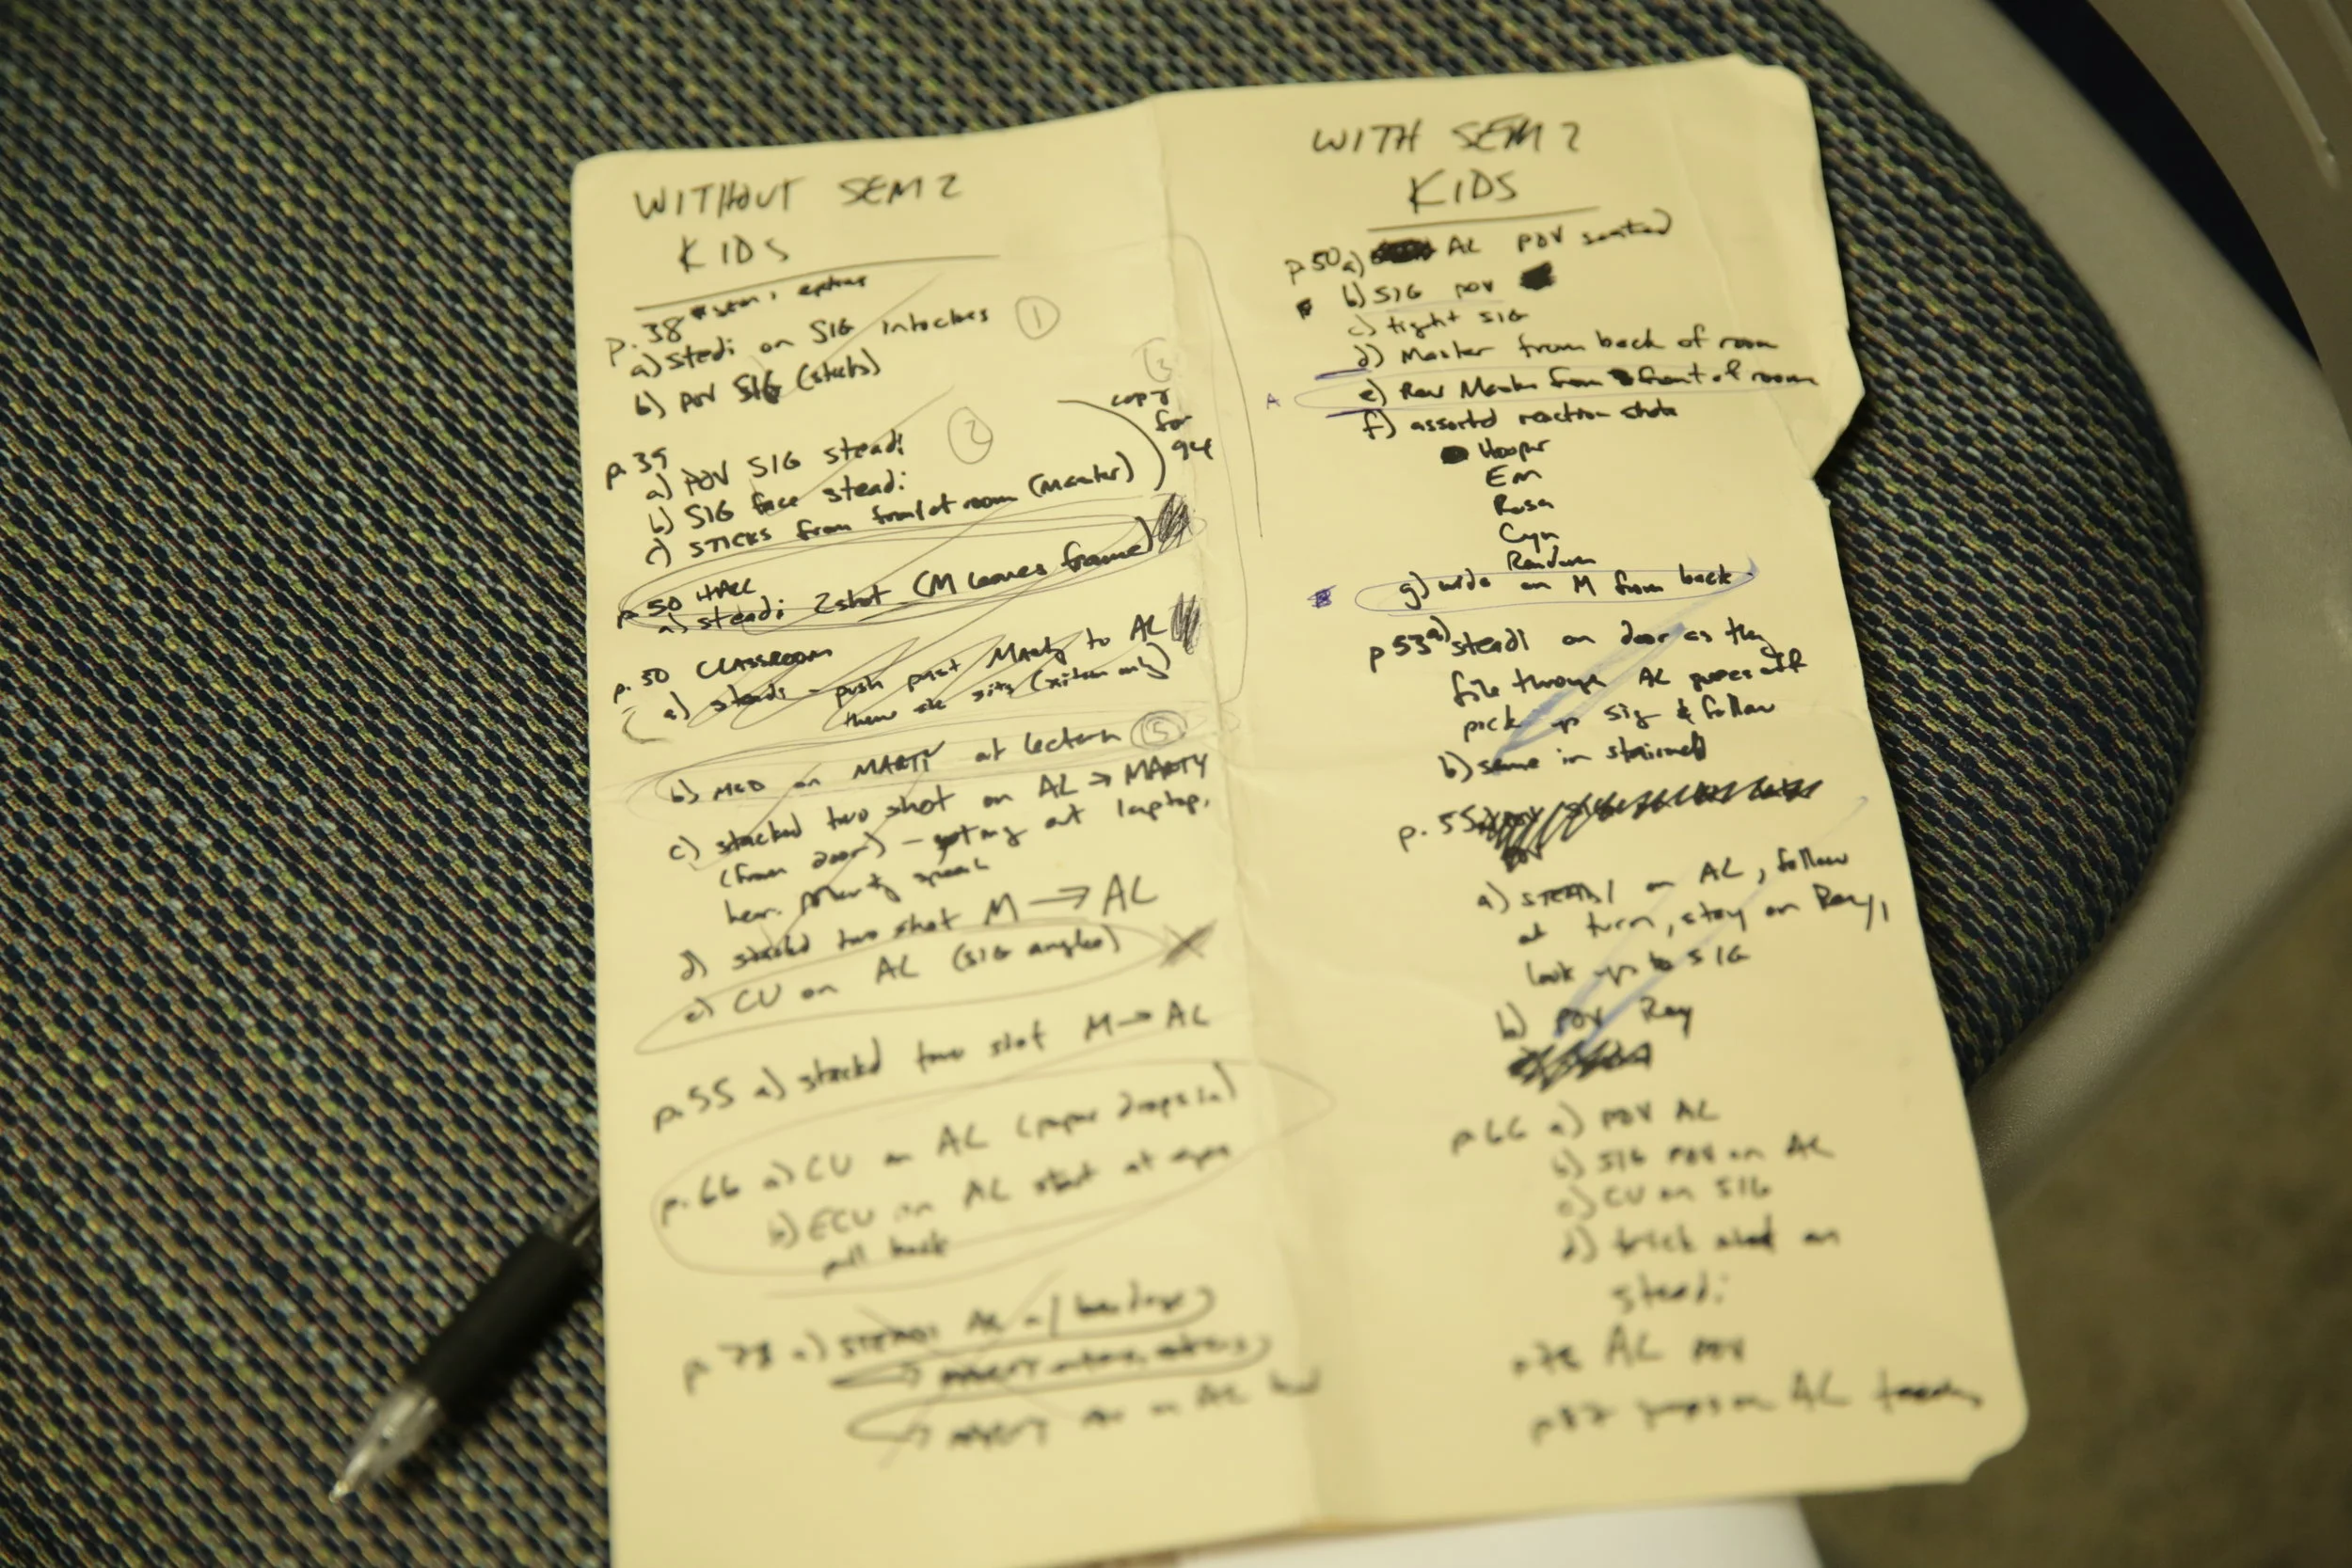 WITHOUT SEM 2
KIDS
p. 38 sem 1 extras
a) stedi on SIG into class
1
b) POV SIG (sticks)
p. 39
2
a) POV SIG steadi
b) SIG face steadi
c) STICKS from front of room (Master)
3
copy
for
p. 50 HALL
a) steadi 2 shot (M leaves frame)
p. 50 CLASSROOM
a) steadi - push past Marty to AL
then she sits
b) MED on MARTY at lectern
5
c) stacked two shot on AL → MARTY
(from door) - getting out laptop,
hear Marty speak
d) stacked two shot M → AL
e) CU on AL (SIG angles)
p. 55 a) stackd two shot M → AL
p. 66 a) CU on AL (paper drops in)
b) ECU on AL start at eyes
pull back
a) STEADI AL w/ bandage
MARTY
MARTY
WITH SEM 2
KIDS
p. 50 a) AL POV seated
b) SIG POV
c) tight SIG
d) Master from back of room
A
e) Rev Master from front of room
f) assorted reaction shots
Hooper
Em
Rosa
Cyn
Random
B
g) wide on M from back
p 53 a) steadi on door as they
file through AL passes off
pick up sig & follow
b) same in stairwell
p. 55
POV
a) STEADI on AL, follow
at turn, stay on Ray,
look up to SIG
b) POV Ray
p 66 a) POV AL
b) SIG POV on AL
c) CU on SIG
d) trick shot on
steadi
AL POV
AL